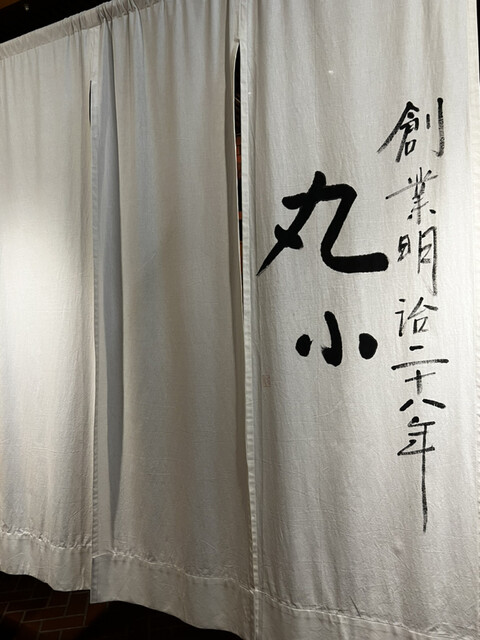 創業明治二十八年
丸小